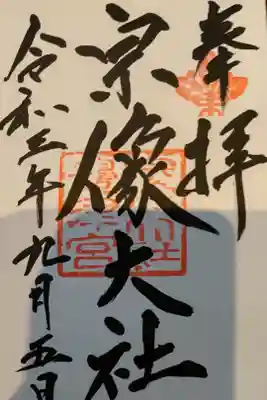 奉拝
宗像大社
令和三年九月五日